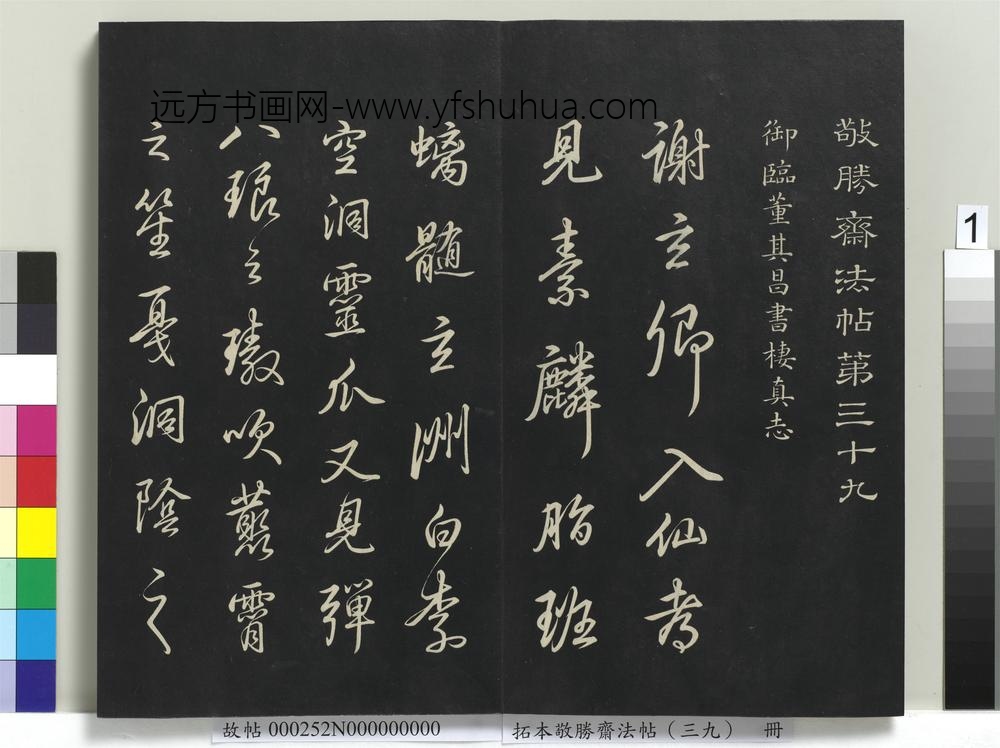 敬勝齋法帖第三十九
御臨董其昌書棲真志
謝玄卿入仙者
見素麟脂班
螭髓玄洲白柰
空洞靈瓜又見彈
八琅之璈吹
之笙戛洞陰之
远方书画网-www.yfshuhua.com
1
故帖 000252N000000000
拓本敬勝齋法帖（三九） 冊